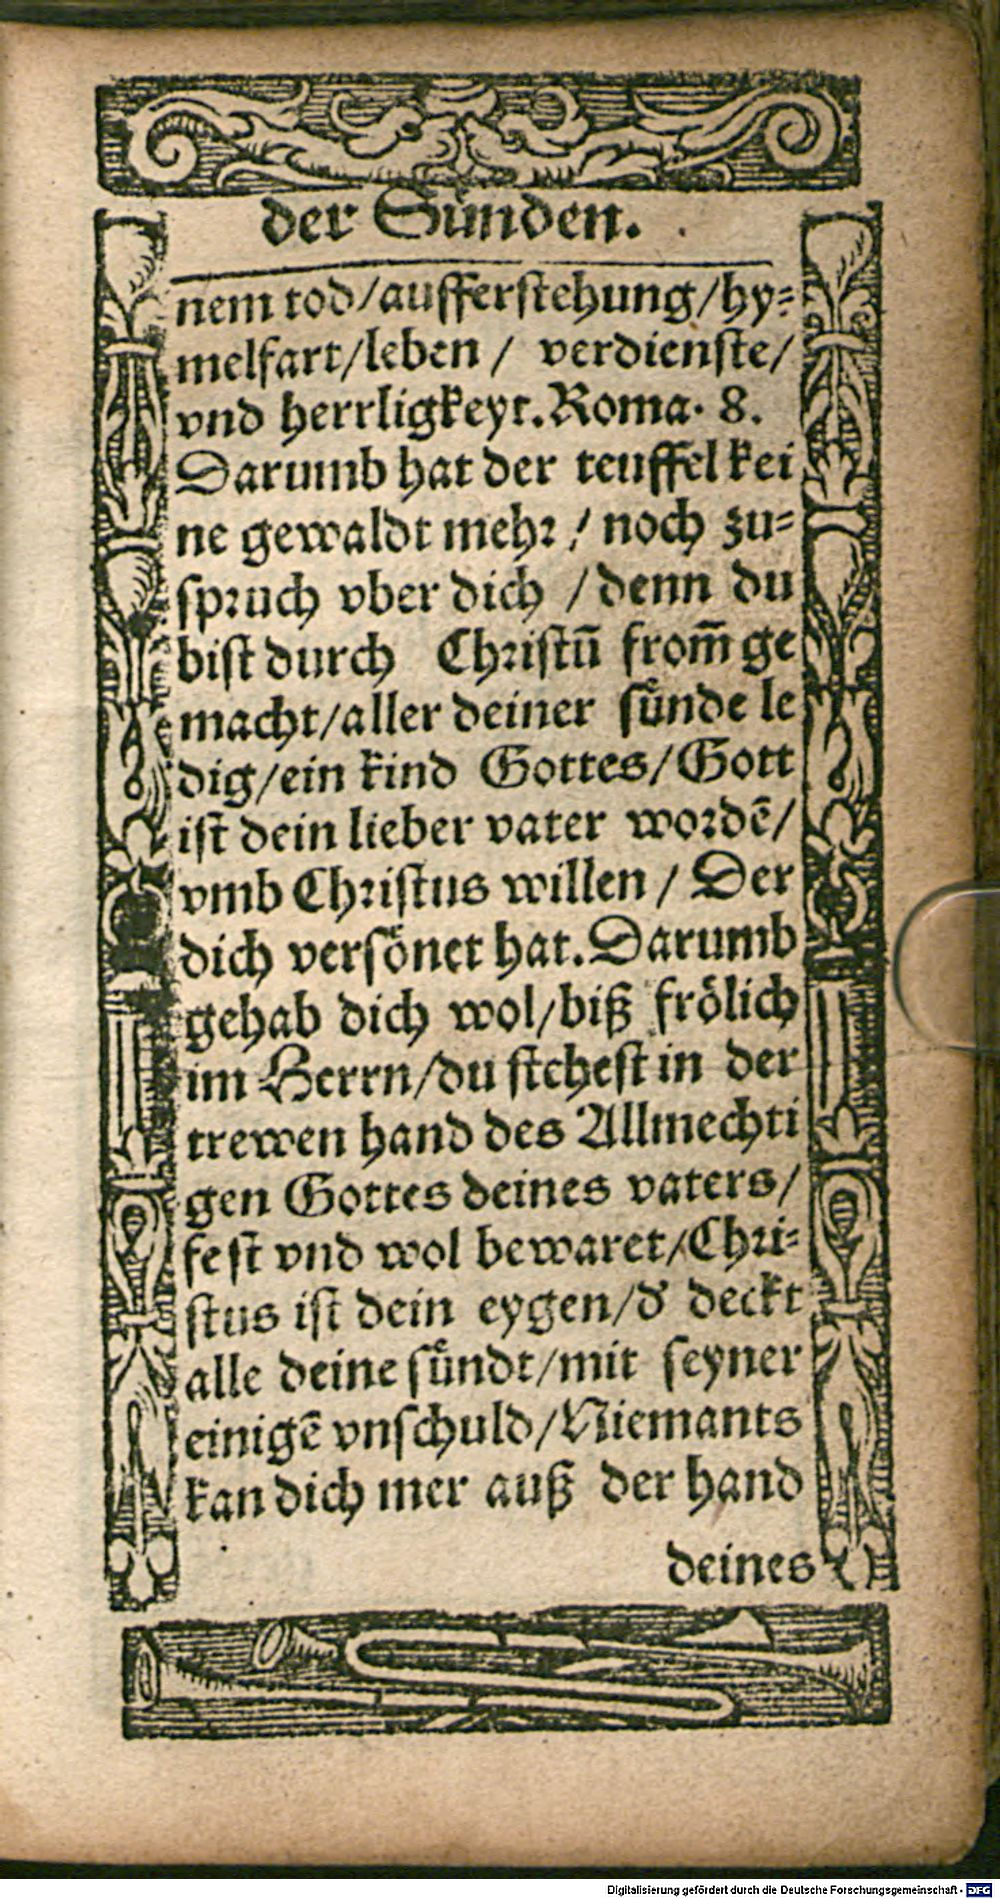 der Sünden.
nem tod/aufferstehung/hy=
melfart/leben / verdienste/
vnd herrligkeyt. Roma. 8.
Darumb hat der teuffel kei
ne gewaldt mehr / noch zu=
spruch vber dich / denn du
bist durch Christū from̄ ge
macht/aller deiner sünde le
dig/ein kind Gottes/Gott
ist dein lieber vater wordē/
vmb Christus willen / Der
dich versönet hat. Darumb
gehab dich wol/biß frölich
im Herrn/du stehest in der
trewen hand des Allmechti
gen Gottes deines vaters/
fest vnd wol bewaret/Chri=
stus ist dein eygen/d' deckt
alle deine sündt/mit seyner
einigē vnschuld/Niemants
kan dich mer auß der hand
deines
Digitalisierung gefördert durch die Deutsche Forschungsgemeinschaft - DFG